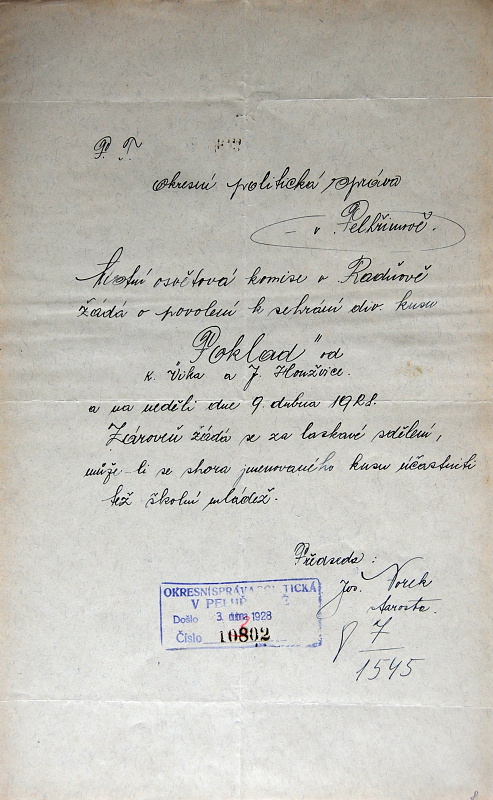 P. T.
okresní politická správa
- v Pelhřimově.
Místní osvětová komise v Radňově
žádá o povolení k sehrání div. kusu
Poklad" od
K. Vika a J. Honžvice.
a na neděli dne 9. dubna 1928.
Zároveň žádá se za laskavé sdělení,
může-li se shora jmenovaného kusu účastniti
též školní mládež.
Předseda:
Jos. Vorek
starosta.
7
1545
OKRESNÍ SPRÁVA POLITICKÁ
V PELHŘIMOVĚ
Došlo 3. 1928
Číslo 10802